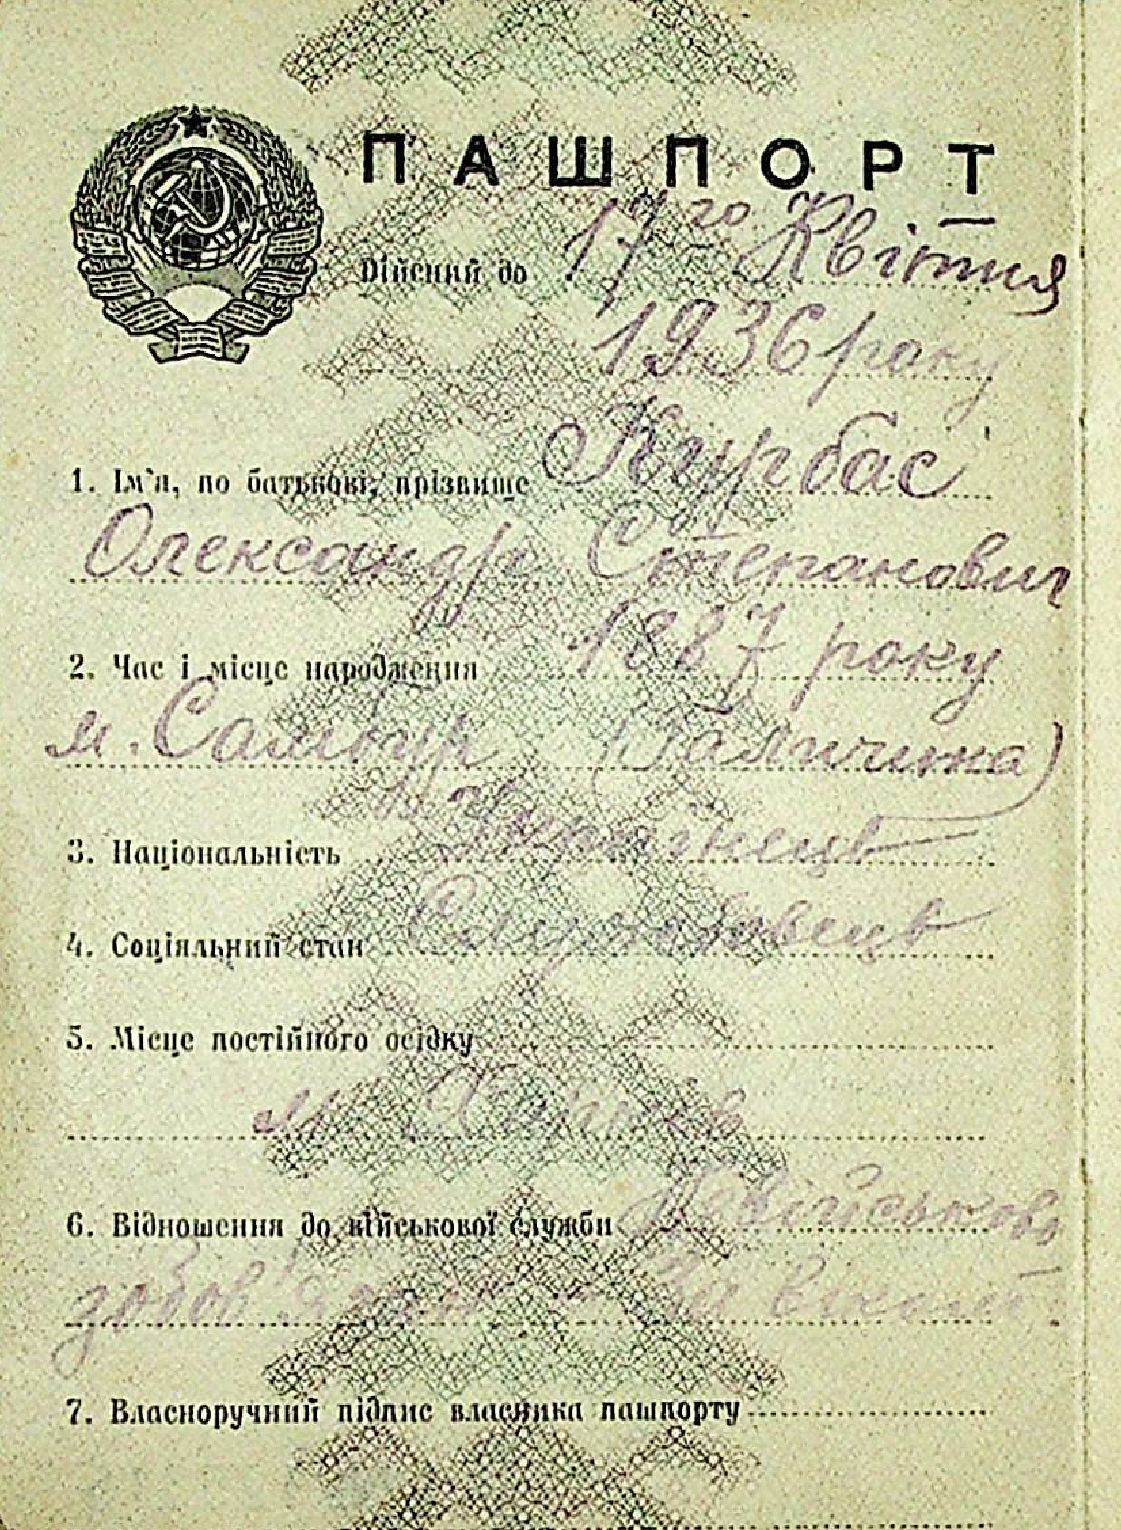 ПАШПОРТ
Дійсний до 17го Квітня
1936 року
1. Ім'я, по батькові, прізвище Курбас
Олександр Степанович
2. Час і місце народження 1887 року
м. Самбур (Галичина)
3. Національність Українець
4. Соціяльний стан Службовець
5. Місце постійного осідку
м Харків
6. Відношення до військової служби Військово
зобов'язан за віком
7. Власноручний підпис власника пашпорту